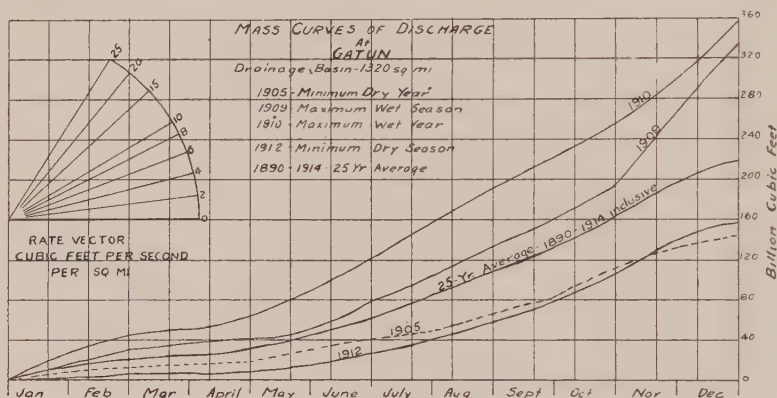 MASS CURVES OF DISCHARGE
At
GATUN
Drainage Basin-1320 sq mi
1905-Minimum Dry Year
1909-Maximum Wet Season
1910-Maximum Wet Year
1912-Minimum Dry Season
1890-1914-25 Yr Average
25
20
15
10
8
6
4
2
0
RATE VECTOR
CUBIC FEET PER SECOND
PER SQ MI
1910
1909
25-Yr. Average-1890-1914 inclusive
1905
1912
360
320
280
240
200
160
120
80
40
0
Billion Cubic Feet
Jan Feb Mar April May June July Aug Sept Oct Nov Dec